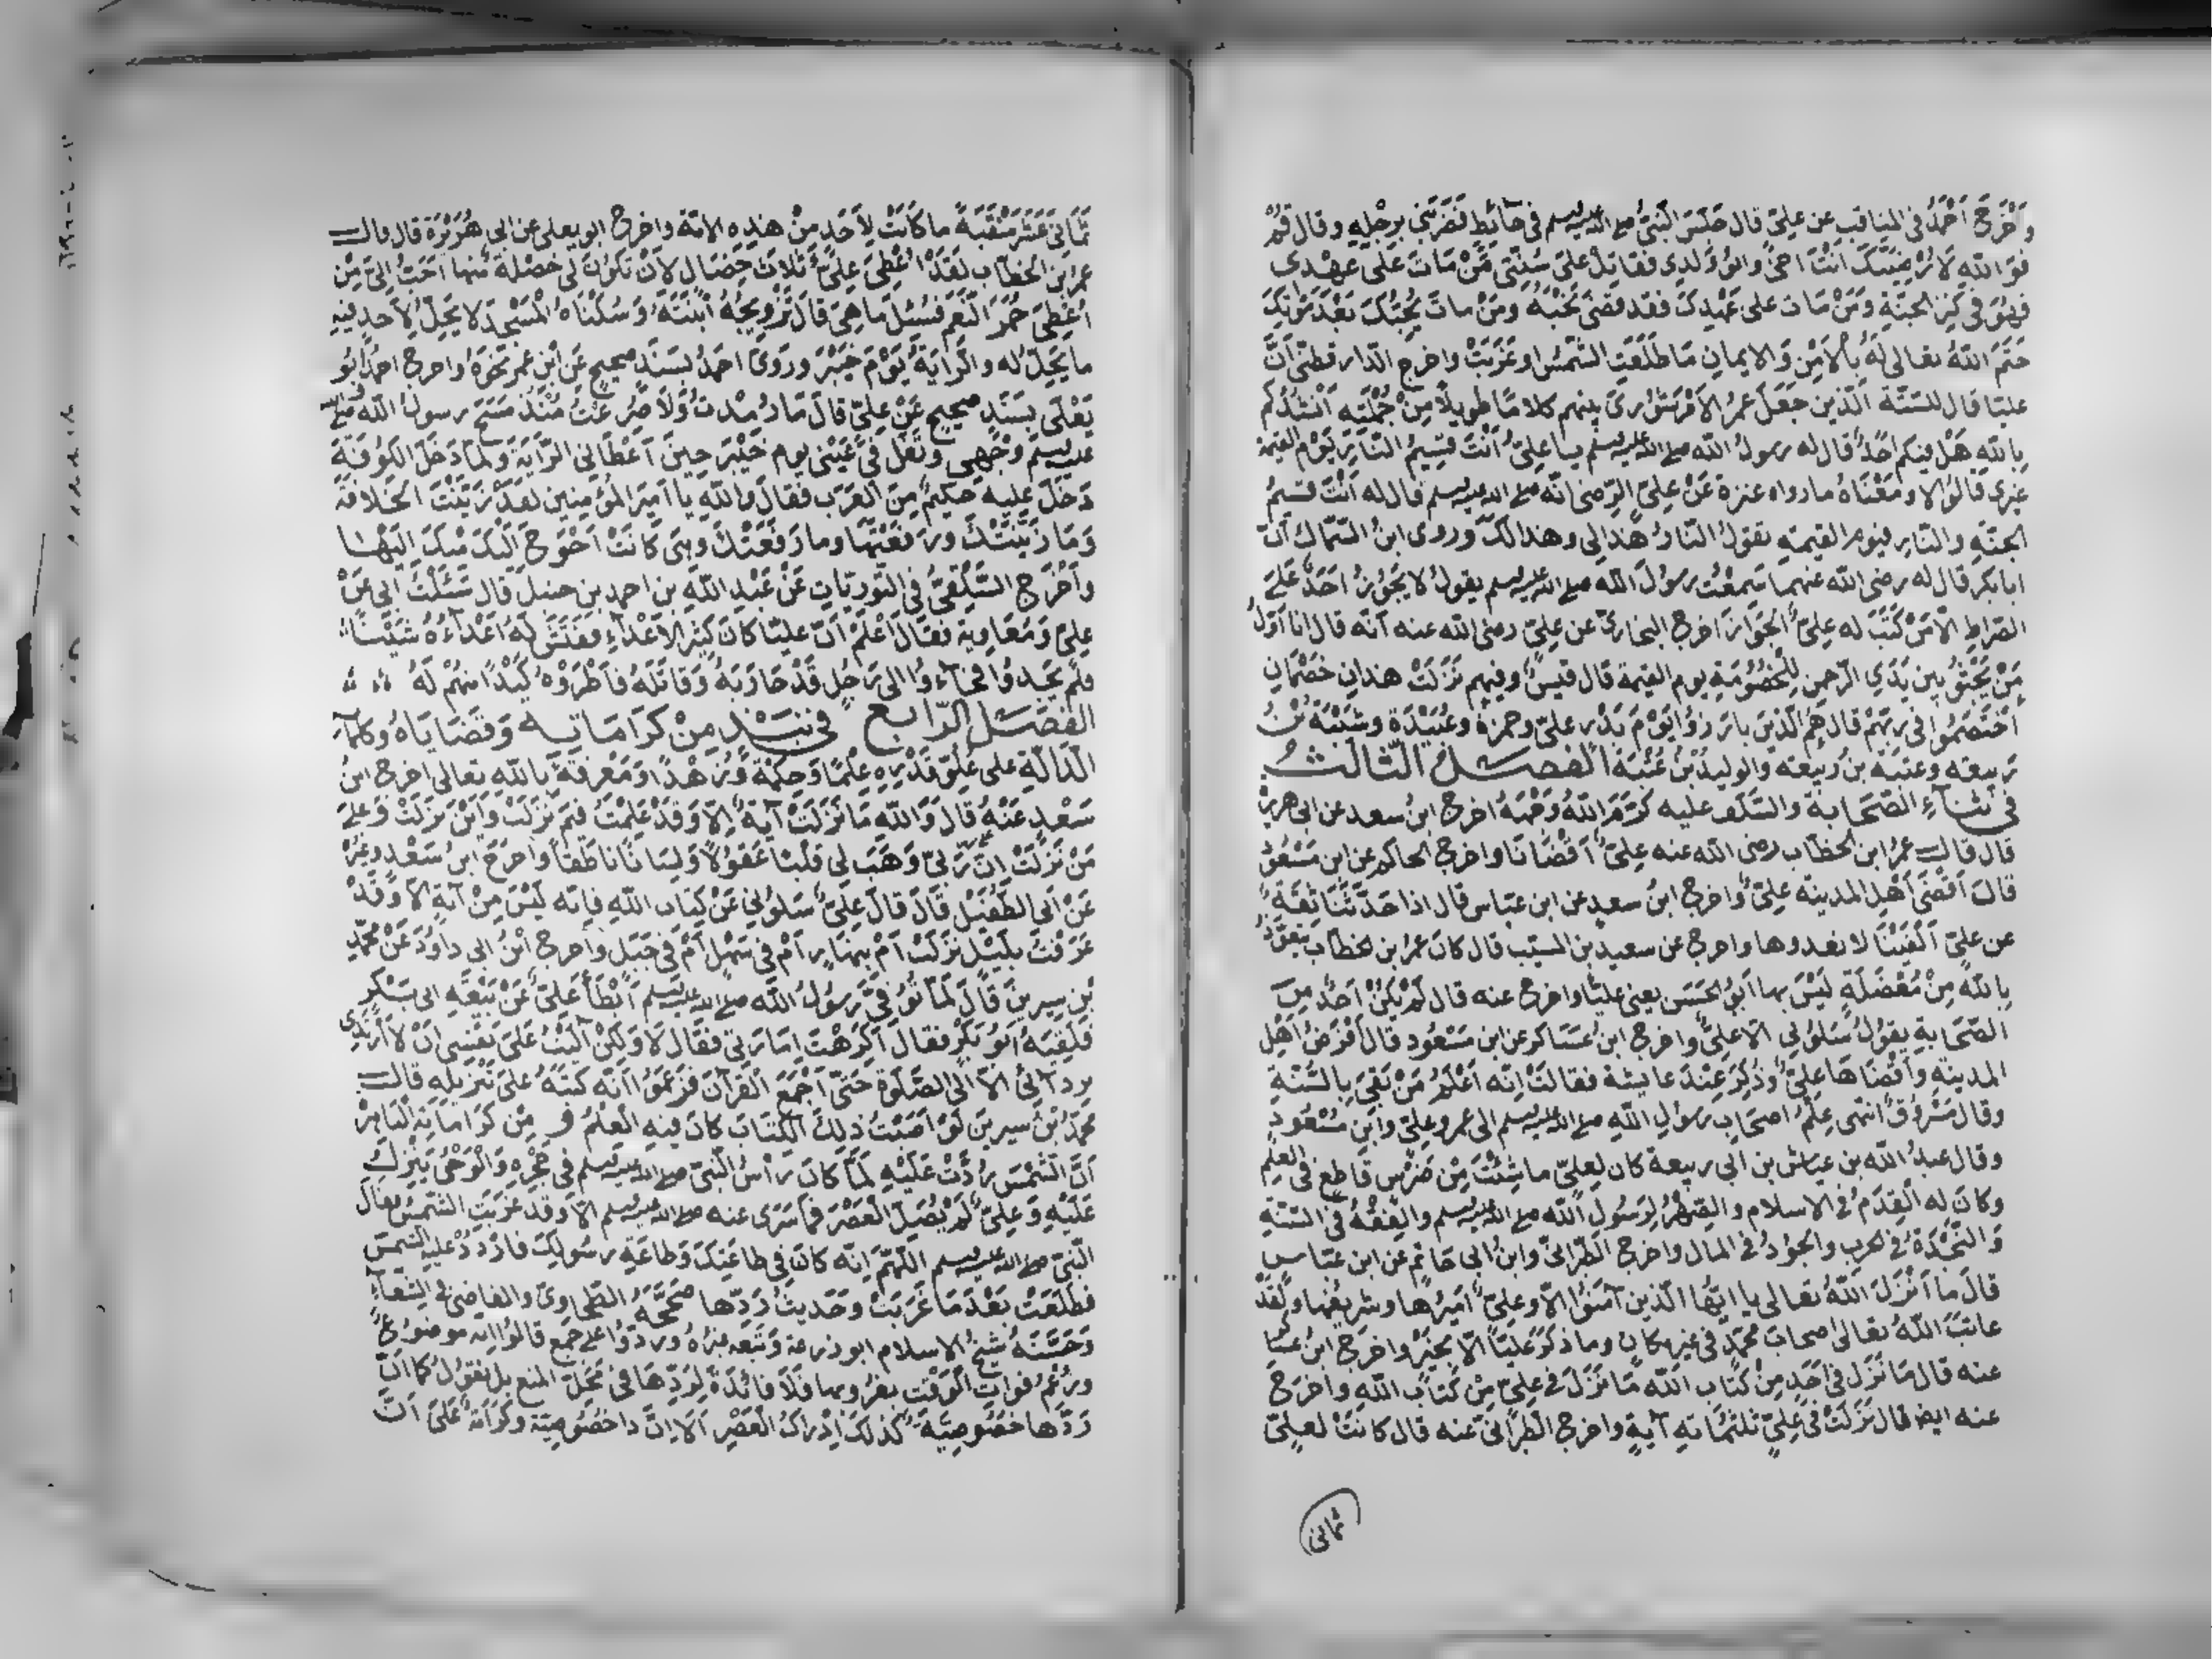 وَأَخْرَجَ أَحْمَدُ في المناقب عن عليّ قال جَلَسَ النّبيُّ صلى الله عليه وسلم في حَائِطٍ فَضَرَبَني برِجْلِهِ وقال قُمْ
فوَ اللّٰهِ لَأُرْضِيَنَّكَ أَنْتَ أخيْ وابُوْ وُلدِي فقاتِلْ علىٰ سُنّتي مَنْ مَاتَ علىٰ عهْدِي
فهُوَ في كنز الجنّةِ وَمَنْ مَاتَ على عَهْدِكَ فقد قَضىٰ نَحْبَهُ ومَنْ ماتَ يُحِبُّكَ بَعْدَ مَوْتِكَ
خَتَمَ اللّٰهُ تعالى لَهُ بالأَمْنِ وَالايمانِ مَا طَلَعَتِ الشّمْسُ اوغَرَبَتْ واخرج الدّار قطنّي أنَّ
عليّا قال للسّتّة الّذين جَعَلَ عمرُ الأمْرَ شُوْرىٰ بينهم كلامًا طويلًا مِنْ جُمْلَتِهِ أَنْشُدُكُم
بِاللّٰهِ هَلْ فيكم احَدٌ قال له رسولُ اللّه صلى الله عليه وسلم يا عليُّ أنْتَ قسِيمُ النّارِ يَوْمَ القيمة
غيري قالُوْا لا ومَعْنَاهُ ما رواه عنزة عَنْ عليّ الرّضى انّه صلى الله عليه وسلم قال له أنْتَ قسيمُ
الجنّةِ والنّارِ فيوم القيمةِ تقولُ النّارُ هٰذا لي وهذا لكَ ورَوى ابنُ السّمّاك أنّ
ابا بكر قال له رضى الله عنهما سَمِعْتُ رسُولَ اللّه صلى الله عليه وسلم يقولُ لا يَجُوْزُ احَدٌ عَلَى
الصّراطِ الّا مَنْ كَتَبَ له عليّ الجَوَازَ اخرج البخارىّ عن عليّ رضى الله عنه أنّه قال انا اوّلُ
مَنْ يَجْثُوْ بين يَدَيِ الرّحمن للْخُصُوْمَةِ يوم القيمة قال قيسٌ وفيهم نَزَلَتْ هذانِ خَصْمَانِ
أخْتَصَمُوْا في ربّهِمْ قال هم الّذينَ بارَزُوْا يَوْمَ بَدْر علىٌّ وحمزةُ وعُبَيْدَةُ وشَيْبَةُ بْنُ
رَبيعة وعتبةُ بنُ رَبيعة والوليدُ بْنُ عُتْبَةَ الفصـــل الثّالثُ
في ثناءِ الصّحابة والسّلف عليه كرّمَ اللّهُ وَجْهَهُ اخرج ابنُ سعد عن ابى هريرة
قال قال عمرُ ابن الخطّاب رضى الله عنه علىٌّ أقْضَانَا واخرج الحاكم عن ابن مَسْعُوْد
قالَ أقْضىٰ أهْلِ المدينه علىٌّ واخرج ابنُ سعدٍ عن ابن عبّاس قال اذا حَدّثَنَا ثِقَةٌ
عن علىّ الْفُتْيَا لا نعدوها واخرج عن سعيد بن المسيّب قال كانَ عمرُ ابن الخطّاب يتعوّذُ
باللّٰهِ مِنْ مُعْضَلَةٍ لَيْسَ بها أبُو الحَسَن يعنى عليّا واخرج عنه قال لَمْ يَكُنْ أحَدٌ مِن
الصّحَابةِ يقولُ سَلُوْني الّا علىٌّ واخرج ابنُ عسَاكر عن ابن مَسْعُود قال أفْرَضُ أهْلِ
المدينةِ وأقْضَاهَا علىٌّ وذُكِرَ عِنْدَ عايشة فقالتْ إنّه أعْلَمُ مَنْ بَقىَ بالسّنّةِ
وقال مَسْرُوْقٌ انتهى عِلْمُ اصحَابِ رسُولِ اللّهِ صلى الله عليه وسلم الى عمرَ وعليّ وابن مَسْعُود
وقال عبدُ اللّه بن عيّاش بن ابى ربيعة كان لِعليّ ما شِئْتَ مِنْ ضرْسٍ قاطعٍ في العلمِ
وكانَ له القدَمُ في الاسلام والصّهْرُ لِرَسُولِ اللّه صلى الله عليه وسلم والفِقْهُ في السّنّةِ
وَالنّجْدَةُ في الحرب والجُوْدُ في المال واخرج الطّبرانيّ وابنُ ابى حَاتم عن ابن عبّاس
قالَ ما أنْزَلَ اللّٰهُ تعالى يا ايّها الّذين آمَنُوْا الّا وعلىٌّ اميرُها وشريفها ولَقَدْ
عاتبَ اللّهُ تعالى اصحابَ محمّدٍ في غير مكان وما ذكرَ عليّا الّا بخيْر واخرج ابنُ عساكر
عنه قال مَا نَزَلَ في أحَدٍ مِنْ كتاب اللّه مَا نَزَلَ في عليّ مِنْ كتابِ اللّهِ واخرَجَ
عنه ايضا قال نَزَلَتْ في عليّ ثلثمائةِ آيةٍ واخرج الطّبرانيُّ عنه قال كانَتْ لعليّ
ثماني
ثَمَانِي عَشَرَ مَنْقَبَةً ما كَانَتْ لِأَحَدٍ مِنْ هذِهِ الامّة واخرج ابو يعلى عن ابى هُرَيْرَة قال قال
عمر ابن الخطاب لقَدْ اُعْطِيَ علىٌّ ثلاثَ خِصَالٍ لَانْ تكوْنَ لى خصْلَةٌ منها أحَبُّ إلىَّ مِنْ
اُعْطِيَ حُمْرَ النّعَم فسُئِلَ مَا هِيَ قالَ تزْوِيجُهُ ابْنَتَهُ وَسُكْنَاهُ الْمَسْجِدَ لا يَحِلُّ لِأحَدٍ فيهِ
ما يَحِلّ له والرّايَةُ يَوْمَ خَيْبَرَ ورَوىٰ احمدُ بسَنَدٍ صحيحٍ عَن ابْن عمر نحْوَهُ واخرج احمدُ ابُو
يَعْلىٰ بسَندٍ صحيحٍ عَنْ عليّ قالَ مَا رُمِدْتُ وَلا صُرِعْتُ مُنْذُ مَسَحَ رسولُ اللّه صلى الله
عليه وسلم وَجْهي وتَفَلَ في عَيْني يوم خَيْبَرَ حِينَ أعْطَاني الرّايَةَ ولمّا دَخَلَ الكوْفَةَ
دَخَلَ عليه حَكيمٌ مِنَ العَرَب فقالَ واللّهِ يا أميرَ المؤمنين لقَدْ زَيّنْتَ الخلافةَ
وَمَا زَيَّنَتْكَ ورَفَعْتَهَا وما رَفَعَتْكَ وهِيَ كانَتْ أحْوَجَ الَيْكَ مِنْكَ الَيْهَا
وأخْرَجَ السّلَفيُّ في الطّوريّاتِ عَنْ عَبْدِ اللّهِ بن احمد بن حنبل قال سَئَلْتُ ابى عَنْ
عليّ وَمُعَاوية فقالَ أعْلَمْ أنّ عليّا كانَ كثيرَ الاعْداءِ ففتّشَ لَهُ اعْدَاءُهُ شَيْئًا
فلم يَجِدُوْا فجَاءُوْا الى رَجُلٍ قَدْ حَارَبَهُ وَقاتَلَهُ فأطْرَوْهُ كَيْدًا منْهم لَهُ
الفصَـــل الرّابع في نُبَـــذٍ مِنْ كرَامَاتِه وَقَضَايَاهُ وكلماتِهِ
الدّالّةِ على عُلوّ قَدْرِهِ عِلْمًا وَحِكْمَةً وَزُهْدًا وَمَعْرِفَةً باللّهِ تعالى اخرج ابنُ
سَعْدٍ عَنْهُ قالَ وَاللّه مَا نَزَلَتْ آيةٌ الّا وَقدْ عَلِمْتُ فيمَ نَزَلَتْ وَأيْنَ نَزَلَتْ وَعلىٰ
مَنْ نَزَلَتْ إنّ ربّي وَهَبَ لى قَلْبًا عَقُوْلًا وَلِسَانًا ناطقًا واخرَجَ ابنُ سَعْدٍ وغيرُهُ
عَنْ أبى الطّفَيْلِ قَالَ قالَ علىٌّ سَلُوْنى عَنْ كتاب اللّهِ فإنّه لَيْسَ مِنْ آيةٍ الّا وقَدْ
عَرَفْتُ بلَيْلٍ نزَلَتْ أمْ بنهارٍ أمْ في سَهْلٍ أمْ في جَبَلٍ واخرج ابْنُ ابى داوُدَ عَنْ محمّدِ
بن سيرينَ قالَ لمّا تُوُفّيَ رَسُولُ اللّه صلى الله عليه وسلم أبْطَأ عَليٌّ عَنْ بَيْعَةِ ابى بَكْرٍ
فلَقِيَهُ ابُو بَكْرٍ فقالَ أكرِهْتَ إمَارَتي فقَال لَا وَلكِنْ آلَيْتُ علىٰ نفْسِي انْ لا أرْتَدِي
بردآئى الّا الى الصّلوةِ حَتّى أجْمَعَ القرآنَ فزَعَمُوْا انّه كَتَبَهُ علىٰ تنزيلِهِ قال
محمّدُ بْنُ سيرينَ لَوْ أصَبْتُ ذلِكَ الكتَابَ كانَ فيهِ العِلْمُ ومِنْ كرَاماتِه الباهِرَةِ
أنَّ الشّمْسَ رُدّتْ عَلَيْهِ لَمّا كانَ رَأْسُ النّبيّ صلى الله عليه وسلم في حَجْرِهِ وَالْوَحْىُ يَنْزِلُ
عَلَيْهِ وَعَليٌّ لَمْ يُصَلّ الْعَصْرَ فمَا سُرّى عنه صلى الله عليه وسلم الّا وقدْ غَرَبَتِ الشّمْسُ فقال
النّبيّ صلى الله عليه وسلم اللّهُمّ إنّه كانَ في طاعَتِكَ وَطاعَةِ رسُولِكَ فارْدُدْ عليْه الشّمسَ
فطَلَعَتْ بَعْدَ مَا غَرَبَتْ وَحَديثُ رَدّها صَحّحَهُ الطّحاوىّ والقاضىْ في الشّفاءِ
وَحَسّنَهُ شيخُ الاسلام ابوزرعة وَتَبِعَه غيْرُه ورَدّوا على جَمْعٍ قالُوْا إنّه موضُوعٌ
وزعْمُ فواتِ الوَقْت بغُرُوبها فَلَا فائدَةَ لِرَدّهَا في مَحَلّ المنع بل نقوْلُ كما انّ
رَدّها خُصُوصِيّةٌ كذلكَ إدْرَاكُ الْعَصْرِ الآن اداءً خصُوصيّة وكرَامَةٌ عَلىٰ انّ